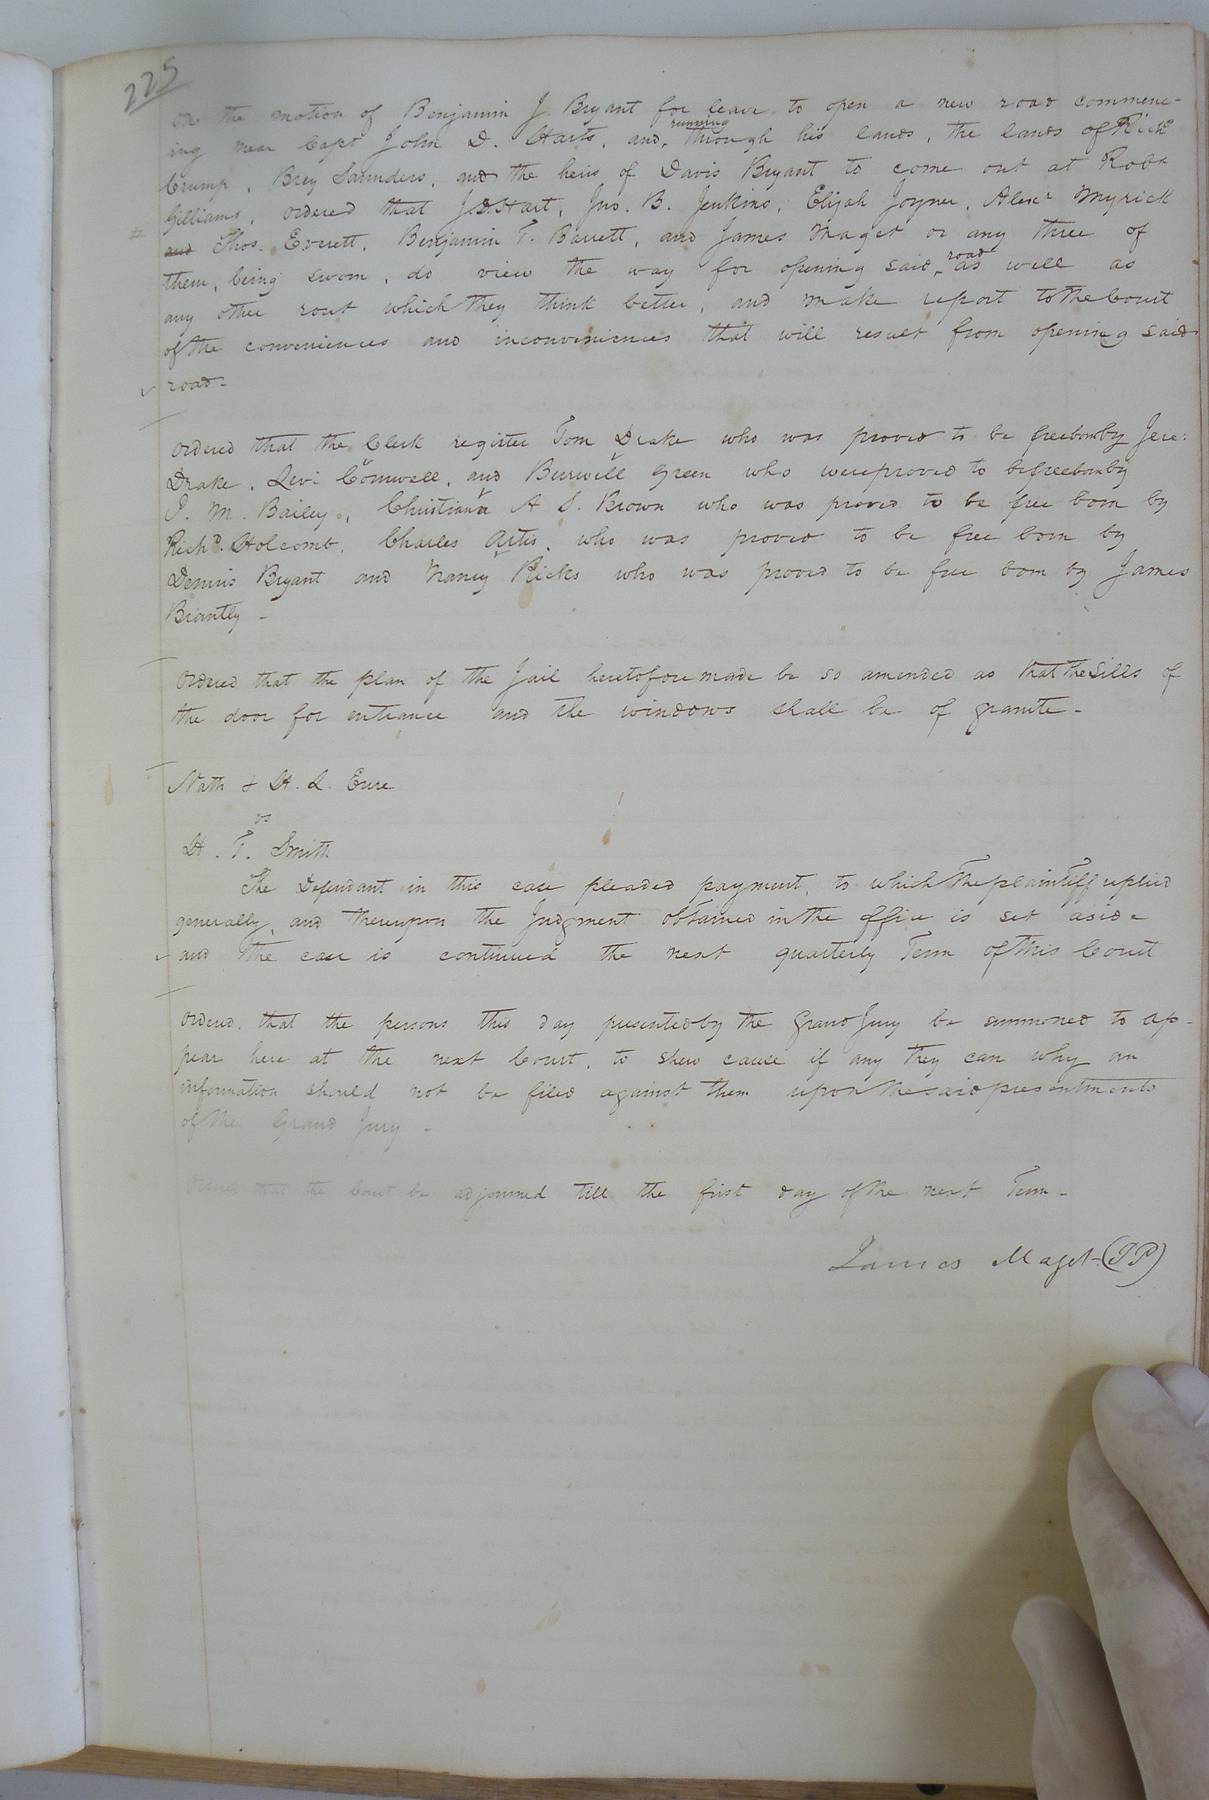 225
On the motion of Benjamin J. Bryant for leave to open a new road commenc-
ing near Capt John D. Harts, and, running through his lands, the lands of Rich^d
Crump, Brey Saunders, and the heirs of Davis Bryant to come out at Robt
Gilliams, ordered that J. D. Hart, Jno. B. Jenkins, Elijah Joyner, Alexr Myrick
and Thos. Everett, Benjamin T. Barrett, and James Maget or any three of
them, being sworn, do view the way for opening said road as well as
any other rout which they think better, and make report to the Court
of the conveniences and inconveniences that will result from opening said
road-
Ordered that the Clerk register Tom Drake who was proved to be freeborn by Jere:
Drake, Levi Cornwell, and Burwell Green who were proved to be freeborn by
P. M. Bailey, Christiana A S. Brown who was proved to be free born by
Richd. Holcomb, Charles Artis, who was proved to be free born by
Dennis Bryant and Nancy Ricks who was proved to be free born by James
Brantly -
Ordered that the plan of the Jail heretofore made be so amended as that the Sills of
the door for entrance and the windows shall be of granite-
Nath & H. L. Eure
vs
H. T. Smith
The Defendant in this case pleaded payment, to which the plaintiff replied
generally, and thereupon the Judgment obtained in the office is set aside
and the case is continued the next quarterly Term of this Court
Ordered, that the persons this day presented by the Grand Jury be summoned to ap-
pear here at the next Court, to shew cause if any they can why an
information should not be filed against them upon the said presentments
of the Grand Jury -
Ordered that the Court be adjourned till the first day of the next Term-
James Maget (JP)